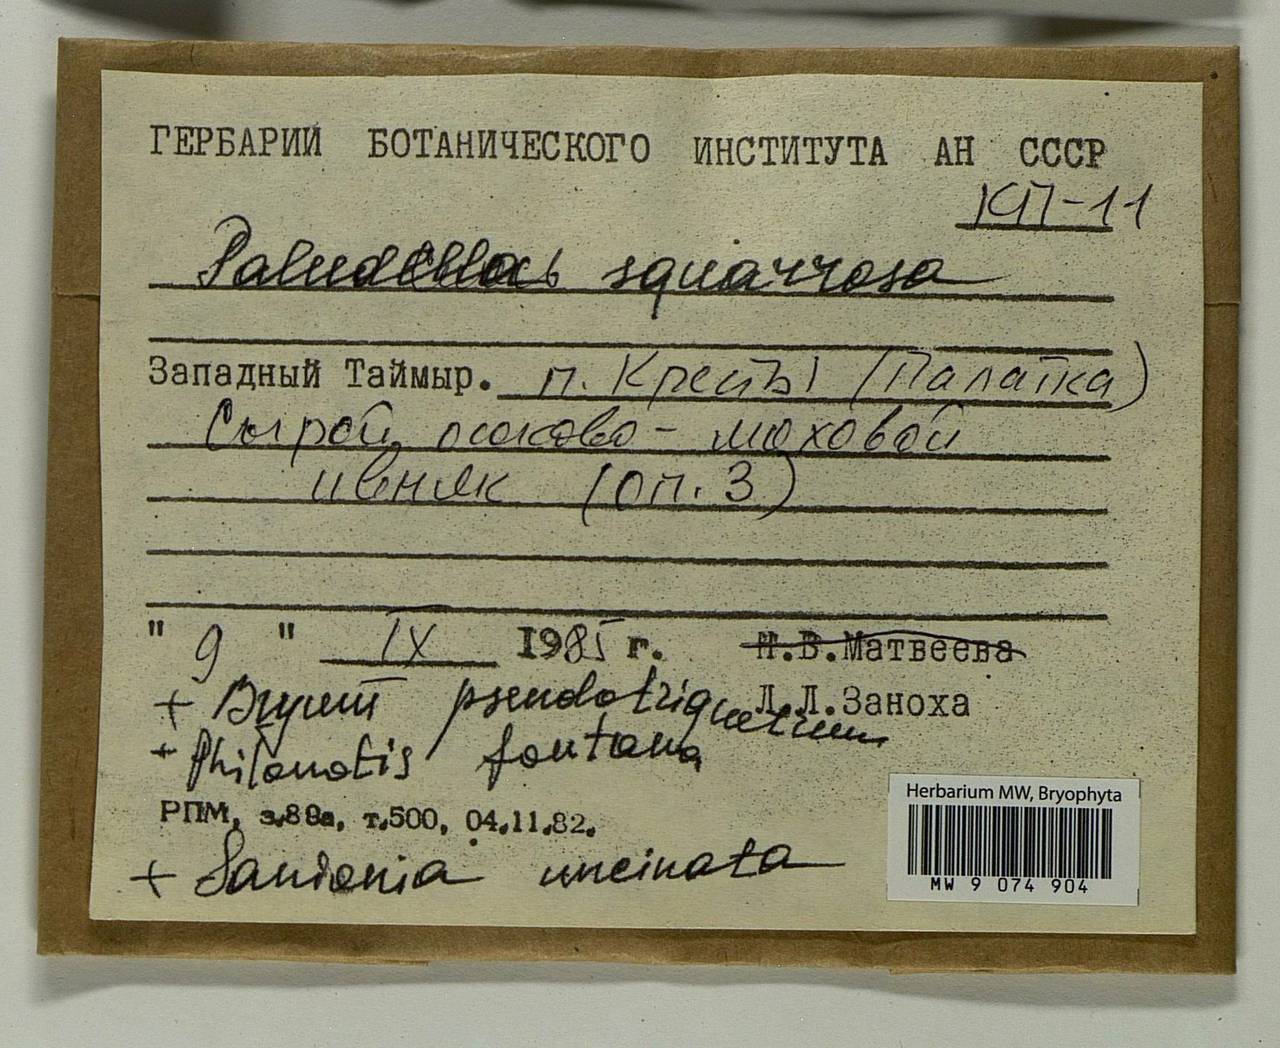 ГЕРБАРИЙ БОТАНИЧЕСКОГО ИНСТИТУТА АН СССР
КП-11
Paludella squarrosa
Западный Таймыр. п. Кресты (Палатка)
Сырой осоково-моховой
ивняк (оп. 3)
" 9 " IX 1985 г. Н.В.Матвеева
Л.Л.Заноха
+ Bryum pseudotriquetrum
+ Philonotis fontana
РПМ, з.89а, т.500, 04.11.82.
+ Sanionia uncinata
Herbarium MW, Bryophyta
MW 9 074 904